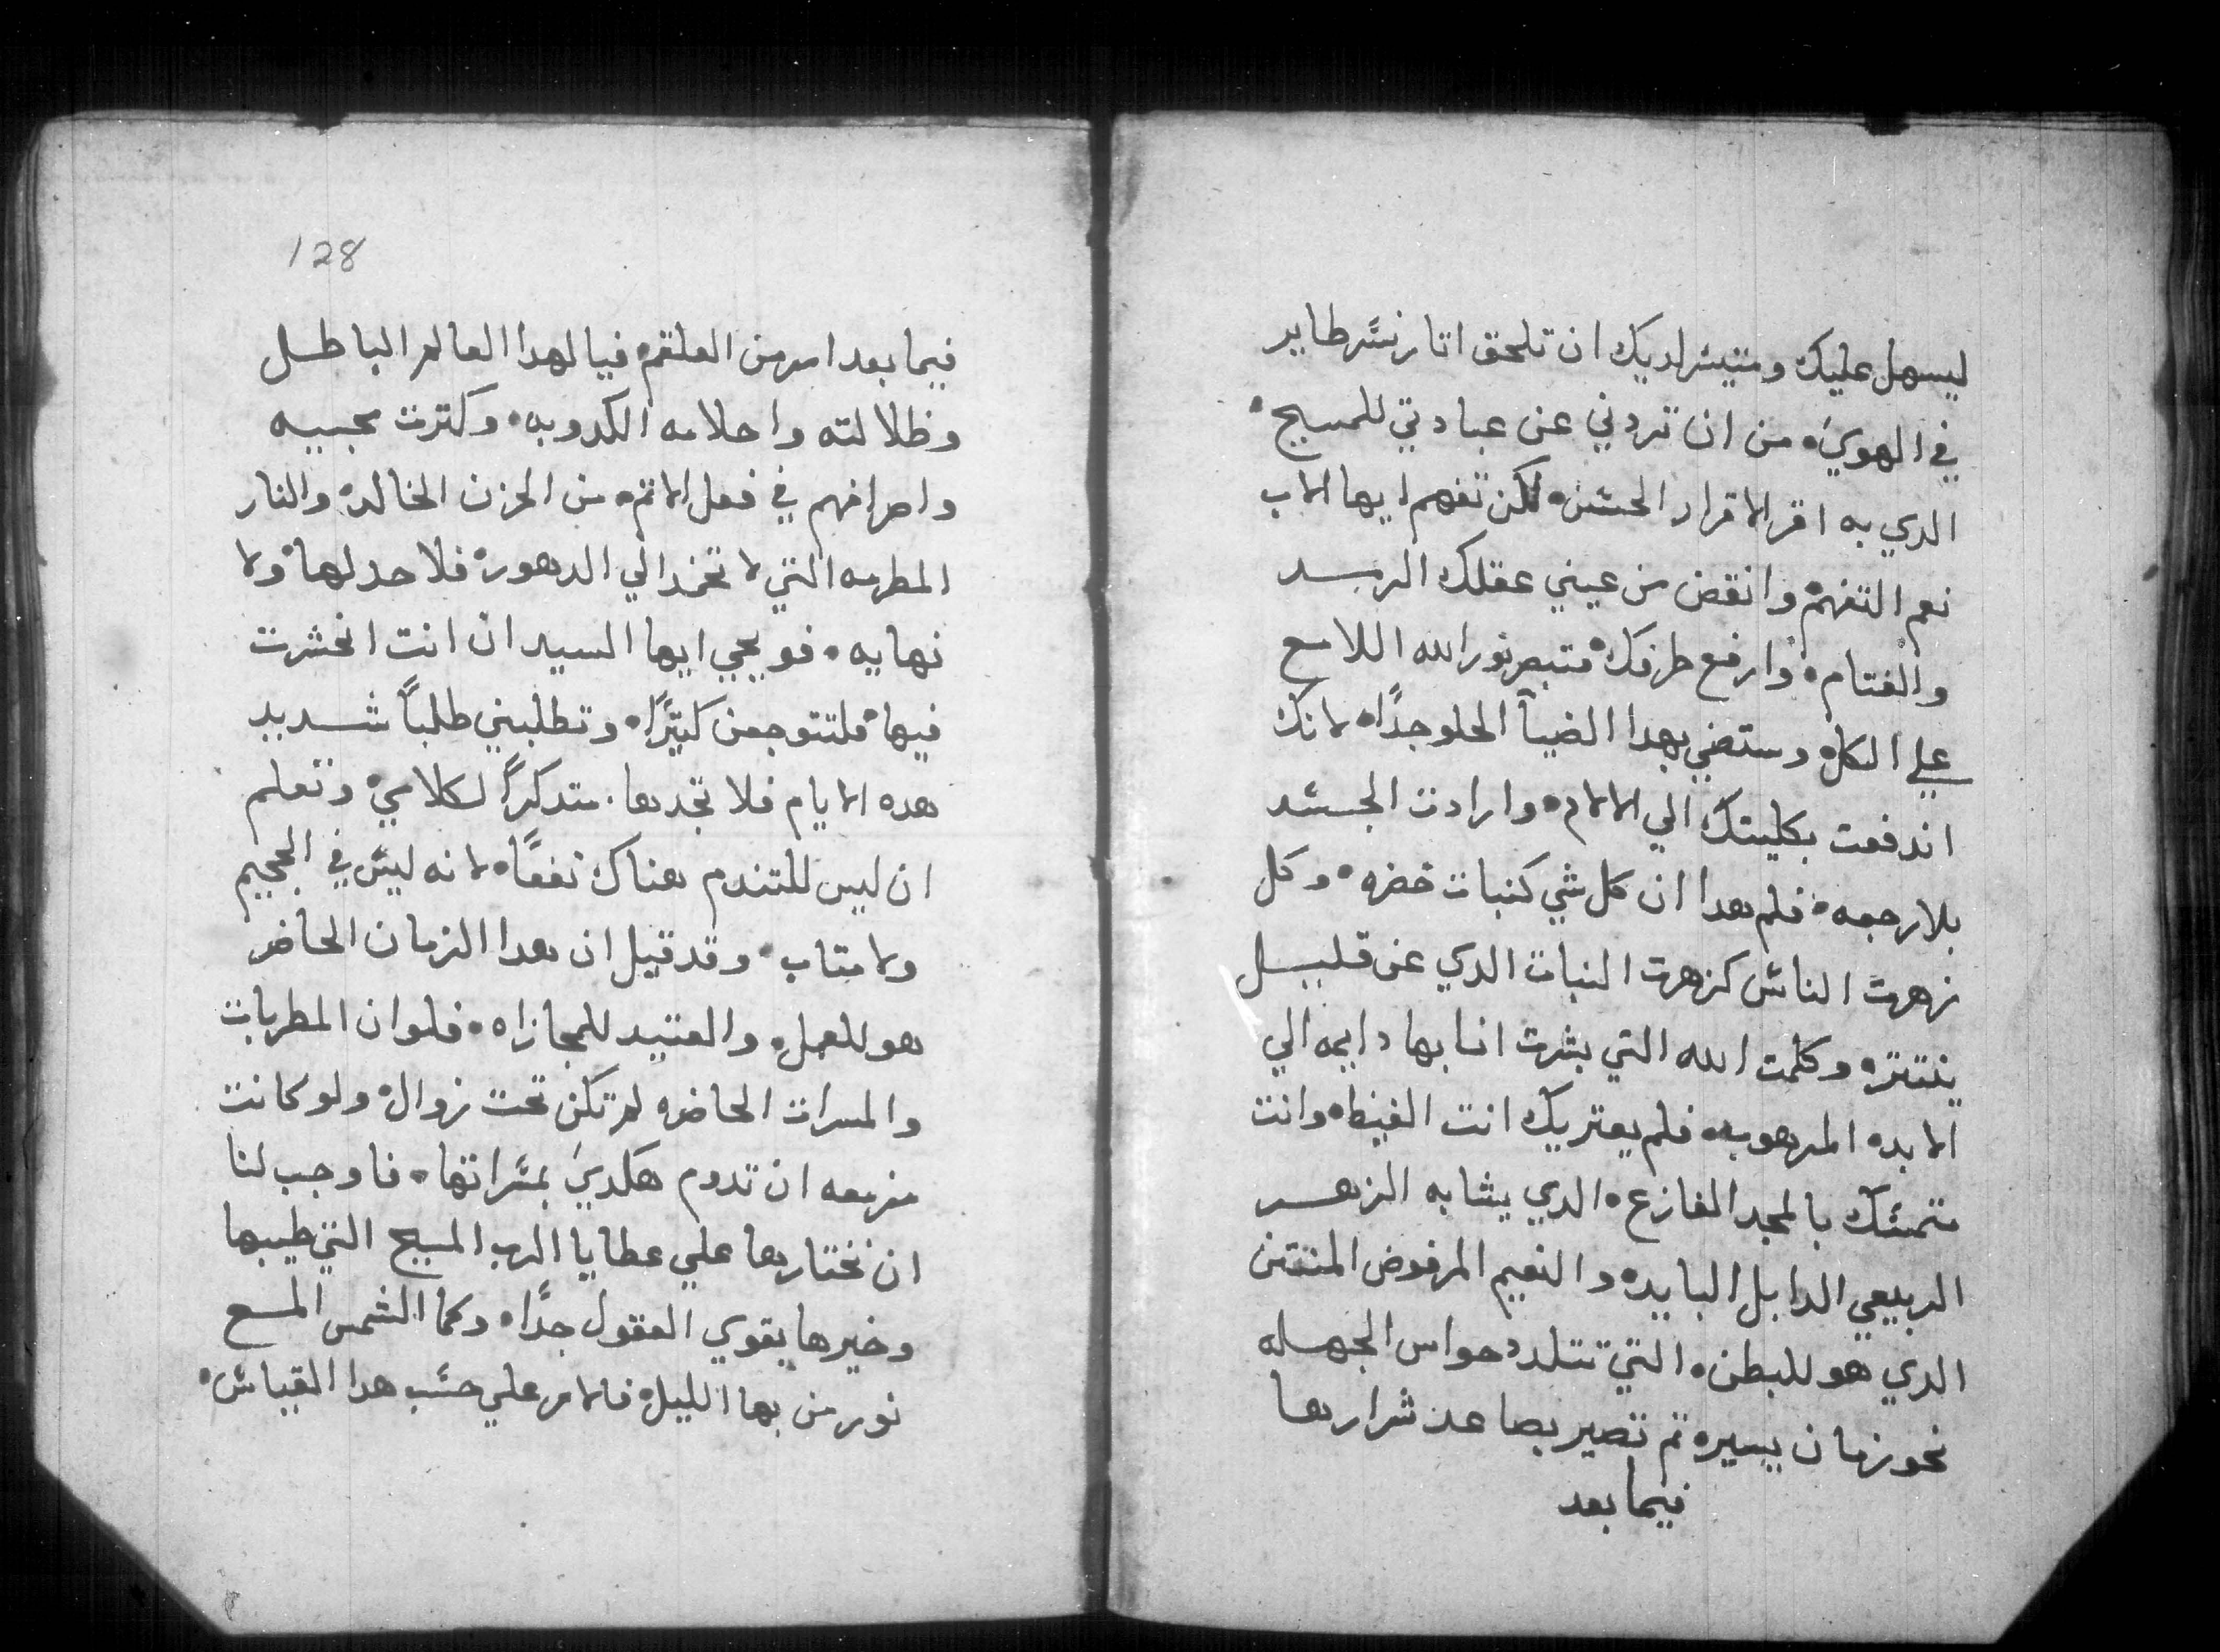 ليسهل عليك ومتيسر لديك ان تلحق اتار نسر طاير
في الهوي من ان تردني عن عبادتي للمسيح
الدي به اقر الاقرار الحسن لكن تفهم ايها الاب
نعم التفهم وانفض من عيني عقلك الرمد
والغتام وارفع طرفك فتبصر نور الله اللامع
علي الكل وستضي بهدا الضيآ الحلو جدًا لانك
اندفعت بكليتك الي الالام وارادت الجسد
بلا رجعه فلم هدا ان كل شي كنبات خضره وكل
زهرت الناس كزهرت النبات الدي عن قليل
ينتتر وكلمت الله التي بشرت انا بها دايمه الي
الابد المرهوبه فلم يعتريك انت الغيظ وانت
متمسك بالمجد الفازع الدي يشابه الزهر
الربيعي الدابل البايد والنعيم المرفوض المنتن
الدي هو للبطن التي تتلدد حواس الجهله
نحو زمان يسير تم تصير بصاعد شرارها
فيما بعد
128
فيما بعد امر من العلقم فيا لهدا العالم الباطل
وظلالته واحلامه الكدوبه وكترت محبيه
واصرافهم في فعل الاتم من الحزن الخالد والنار
المطرمه التي لا تخمد الي الدهور فلا حد لها ولا
نهايه فويحي ايها السيد ان انت انحشرت
فيها فلتتوجعن كتيرًا وتطلبني طلباً شديد
هده الايام فلا تجدها متدكراً لكلامي وتعلم
ان ليس للتندم هناك نفعاً لانه ليس في الجحيم
ولا متاب وقد قيل ان هدا الزمان الحاضر
هو للعمل والعتيد للمجازاه فلو ان المطربات
والمسرات الحاضره لم تكن تحت زوال ولو كانت
مزمعه ان تدوم هكدي بمسراتها فاوجب لنا
ان نختارها علي عطايا الرب المسيح التي طيبها
وخيرها يقوي العقول جدًا وكما الشمس المع
نور من بها الليل فالامر علي حسب هدا القياس